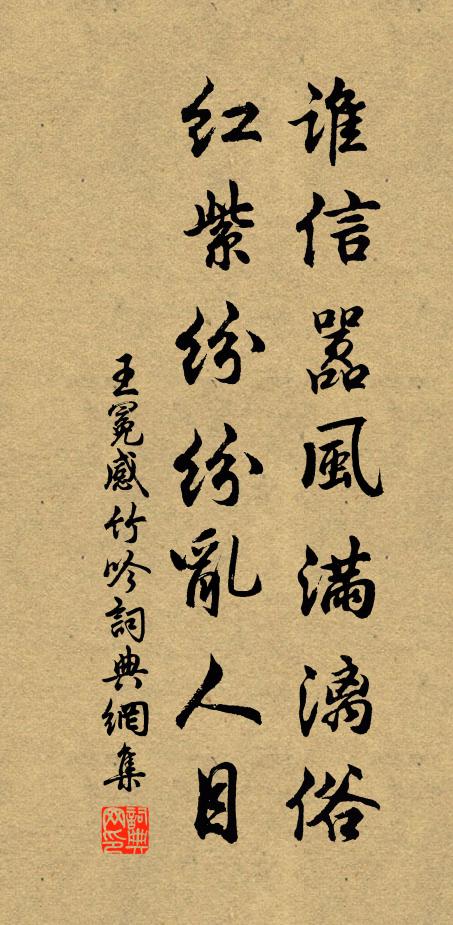 誰信囂風滿漓俗
紅紫紛紛亂人目
王冕感竹吟詞典網集
詞典網印